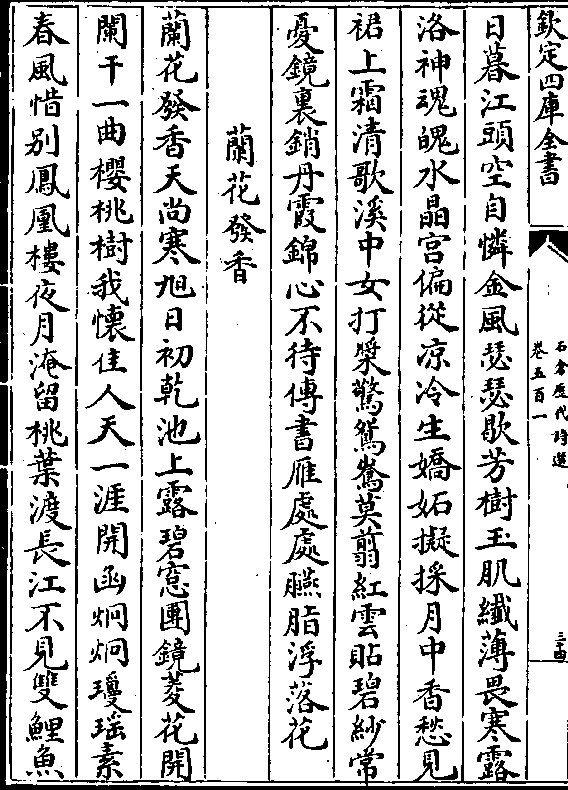 欽定四庫全書
石倉歷代詩選
卷五百一
三十四
日暮江頭空自憐金風瑟瑟歇芳樹玉肌纖薄畏寒露
洛神魂魄水晶宮偏從凉冷生嬌妬擬採月中香愁見
裙上霜清歌溪中女打槳驚鴛鴦莫翦紅雲貼碧紗常
憂鏡裏銷丹霞錦心不待傳書雁處處臙脂浮落花
蘭花發香
蘭花發香天尚寒旭日初乾池上露碧窓團鏡菱花開
闌干一曲櫻桃樹我懷佳人天一涯開函炯炯瓊瑶素
春風惜别鳳凰樓夜月淹留桃葉渡長江不見雙鯉魚